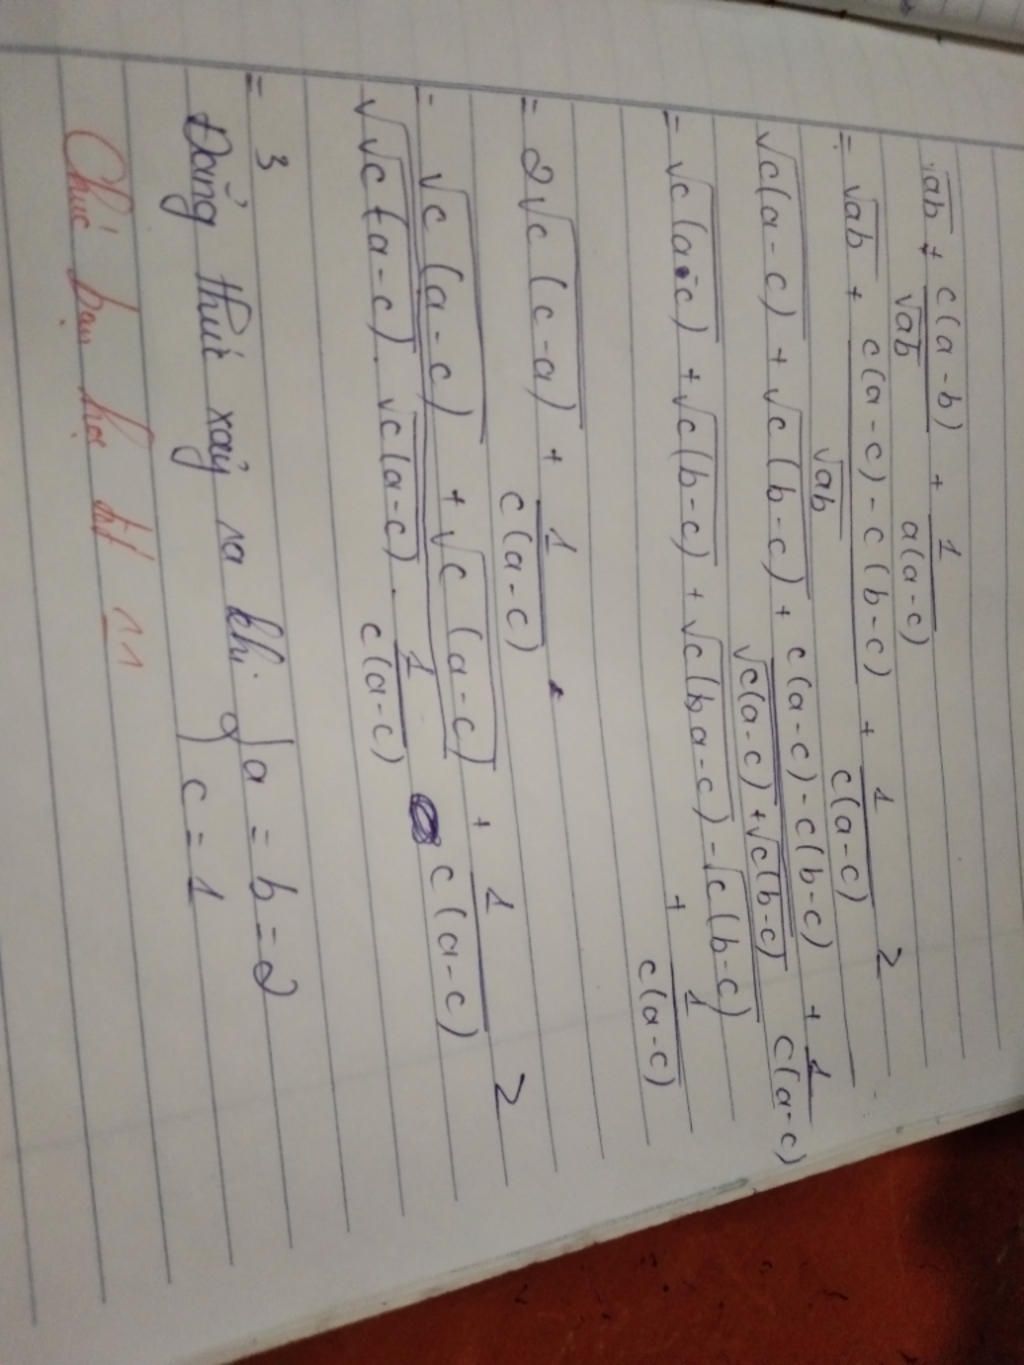 √ab + c(a-b)/√ab + 1/a(a-c)
= √ab + c(a-c)-c(b-c)/√ab + 1/c(a-c) ≥
√c(a-c) + √c(b-c) + c(a-c)-c(b-c)/√c(a-c)+√c(b-c) + 1/c(a-c)
= √c(a-c) + √c(b-c) + √c(a-c) - √c(b-c) + 1/c(a-c)
= 2√c(c-a) + 1/c(a-c)
= √c(a-c) + √c(a-c) + 1/c(a-c) ≥
√√c(a-c). √c(a-c). 1/c(a-c)
= 3
Đẳng thức xảy ra khi { a = b = 2
c = 1
Chúc bạn học tốt